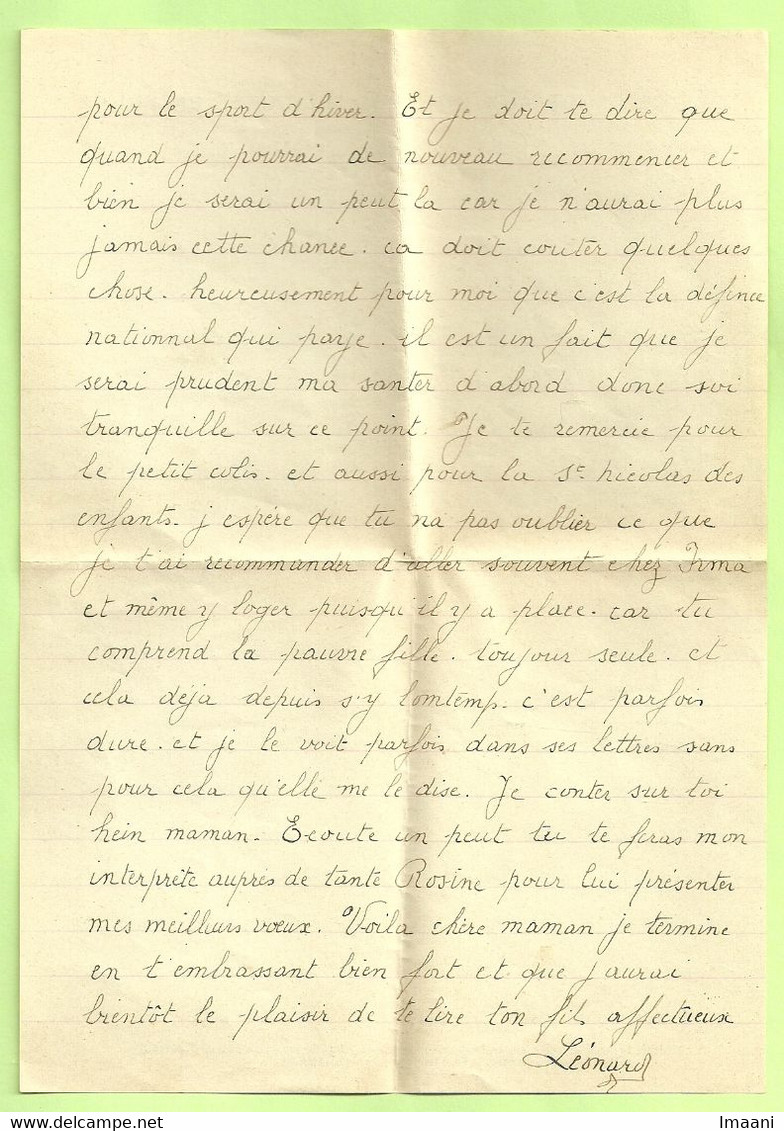 pour le sport d'hiver. Et je doit te dire que
quand je pourrai de nouveau recommencer et
bien je serai un peut la car je n'aurai plus
jamais cette chance. ca doit couter quelques
chose. heureusement pour moi que c'est la défince
nationnal qui paye. il est un fait que je
serai prudent ma santer d'abord donc soi
tranquille sur ce point. Je te remercie pour
le petit colis. et aussi pour la St. nicolas des
enfants. j espére que tu na pas oublier ce que
je t'ai recommander d'aller souvent chez Irma
et même y loger puisqu'il y a place. car tu
comprend la pauvre fille. toujour seule. et
cela déja depuis s'y lomtemp. c'est parfois
dure. et je le voit parfois dans ses lettres sans
pour cela qu'elle me le dise. Je conter sur toi
hein maman. Ecoute un peut tu te feras mon
interprête auprés de tante Rosine pour lui présenter
mes meilleurs voeux. Voila chère maman je termine
en t'embrassant bien fort et que j aurai
bientôt le plaisir de te lire ton fils affectueux
Léonard
Imaani